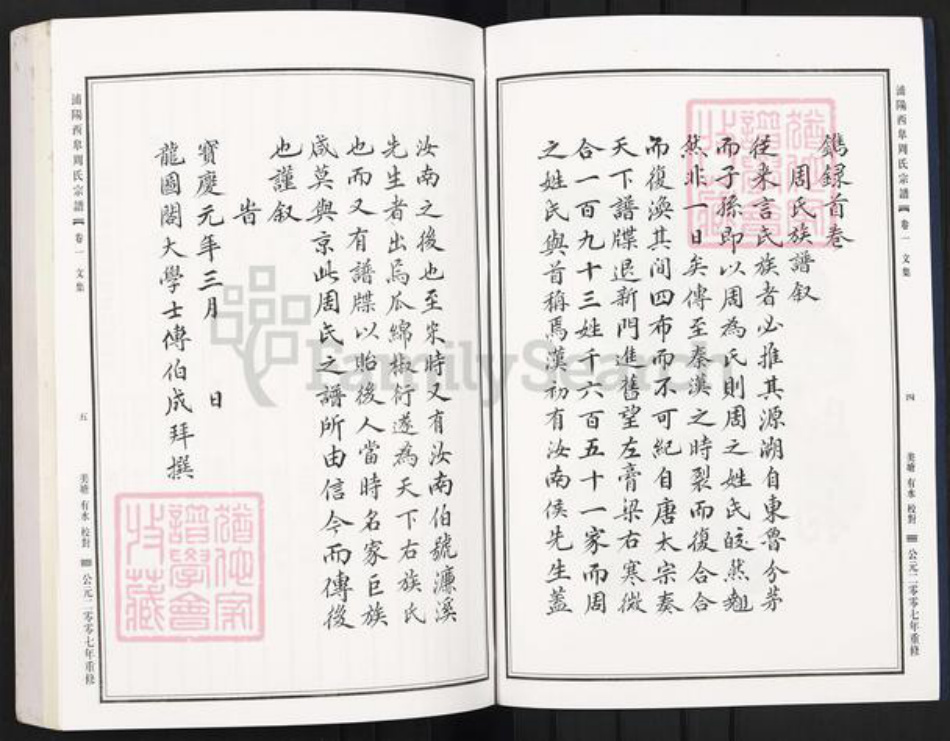 浦陽西皐周氏宗譜 卷一 文集
四
美塘 有水 校對 公元二零零七年重修
鐫録首卷
周氏族譜叙
從来言氏族者必推其源溯自東魯分茅
而子孫即以周為氏則周之姓氏皎然
然非一日矣傳至秦漢之時裂而復合合
而復渙其間四布而不可紀自唐太宗奏
天下譜牒退新門進舊望左膏梁右寒微
合一百九十三姓千六百五十一家而周
之姓氏與首稱焉漢初有汝南侯先生蓋
汝南之後也至宋時又有汝南伯號濂溪
先生者出焉瓜綿椒衍遂為天下右族氏
也而又有譜牒以貽後人當時名家巨族
咸莫與京此周氏之譜所由信今而傳後
也謹叙
旹
寳慶元年三月 日
龍圖閣大學士傅伯成拜撰
浦陽西皐周氏宗譜 卷一 文集
五
美塘 有水 校對 公元二零零七年重修
FamilySearch